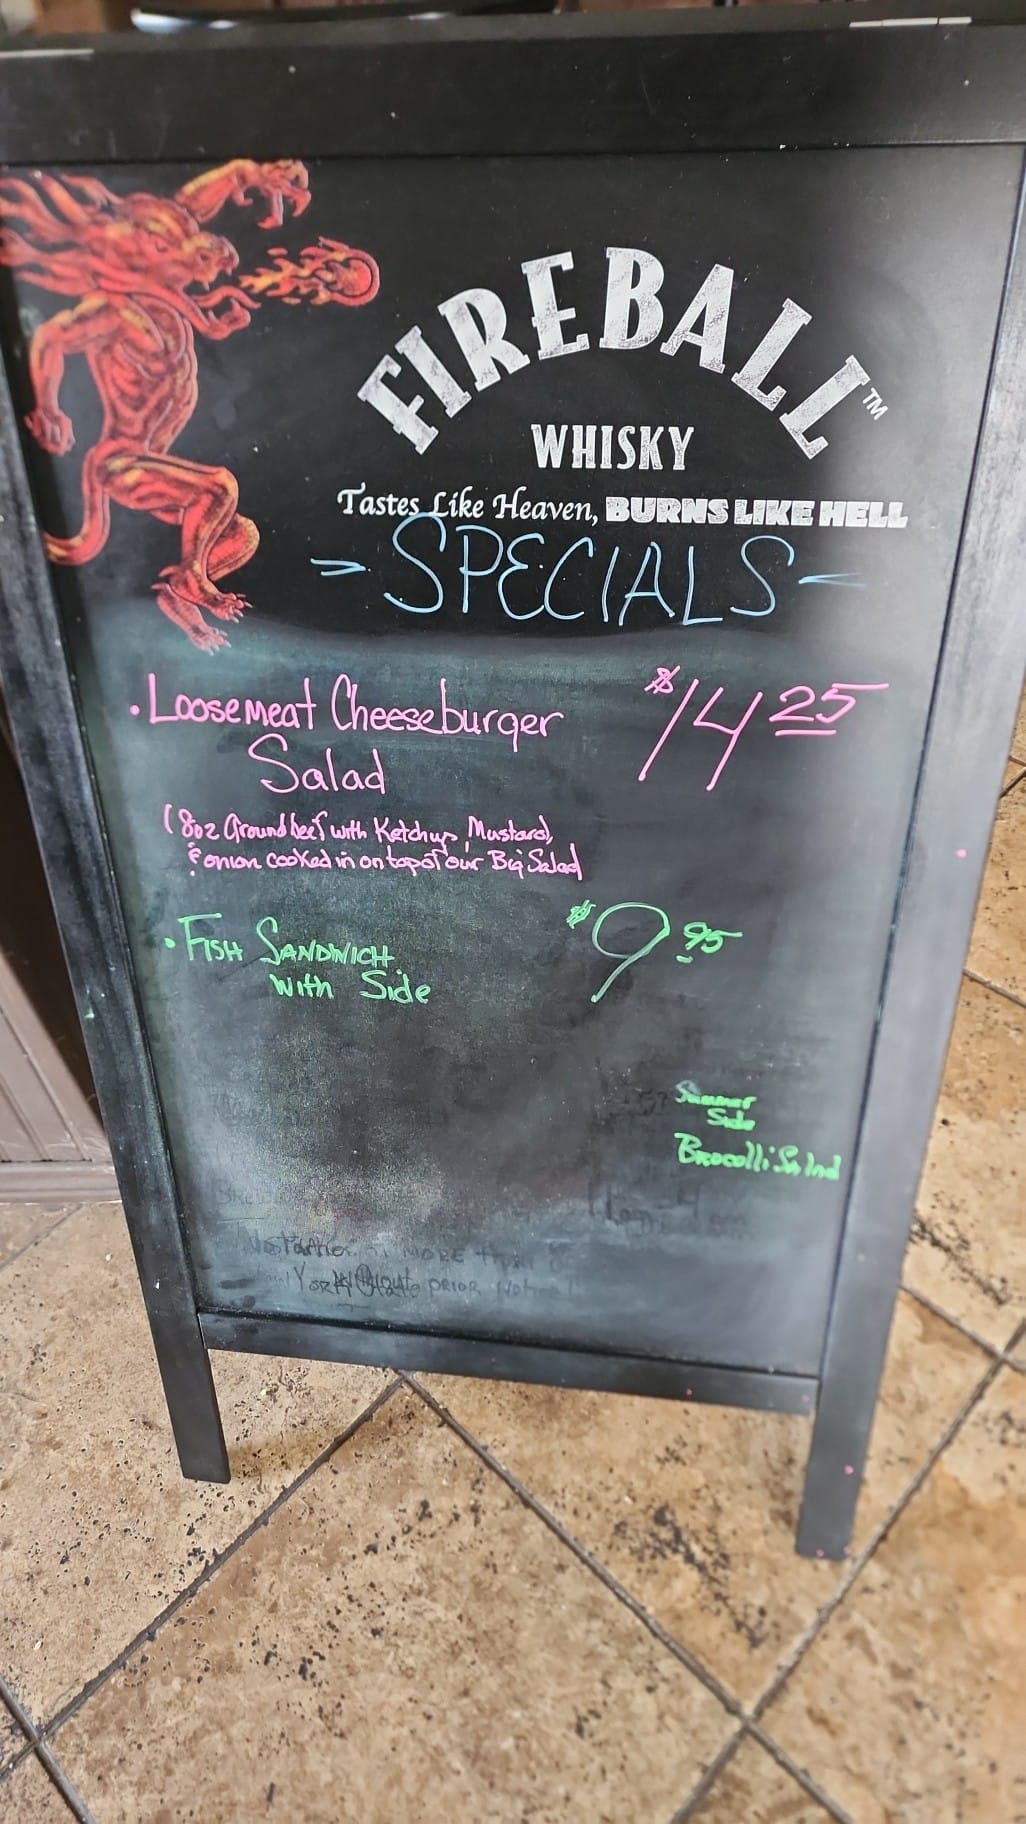 FIREBALL™
WHISKY
Tastes Like Heaven, BURNS LIKE HELL
- SPECIALS -
• Loosemeat Cheeseburger $14 25
Salad
(8oz Ground beef with Ketchup, Mustard,
& onion cooked in on top of our Big Salad
• FISH SANDWICH $9 95
with Side
Summer
Side
Brocolli Salad
MORE than
PRIOR Notice!